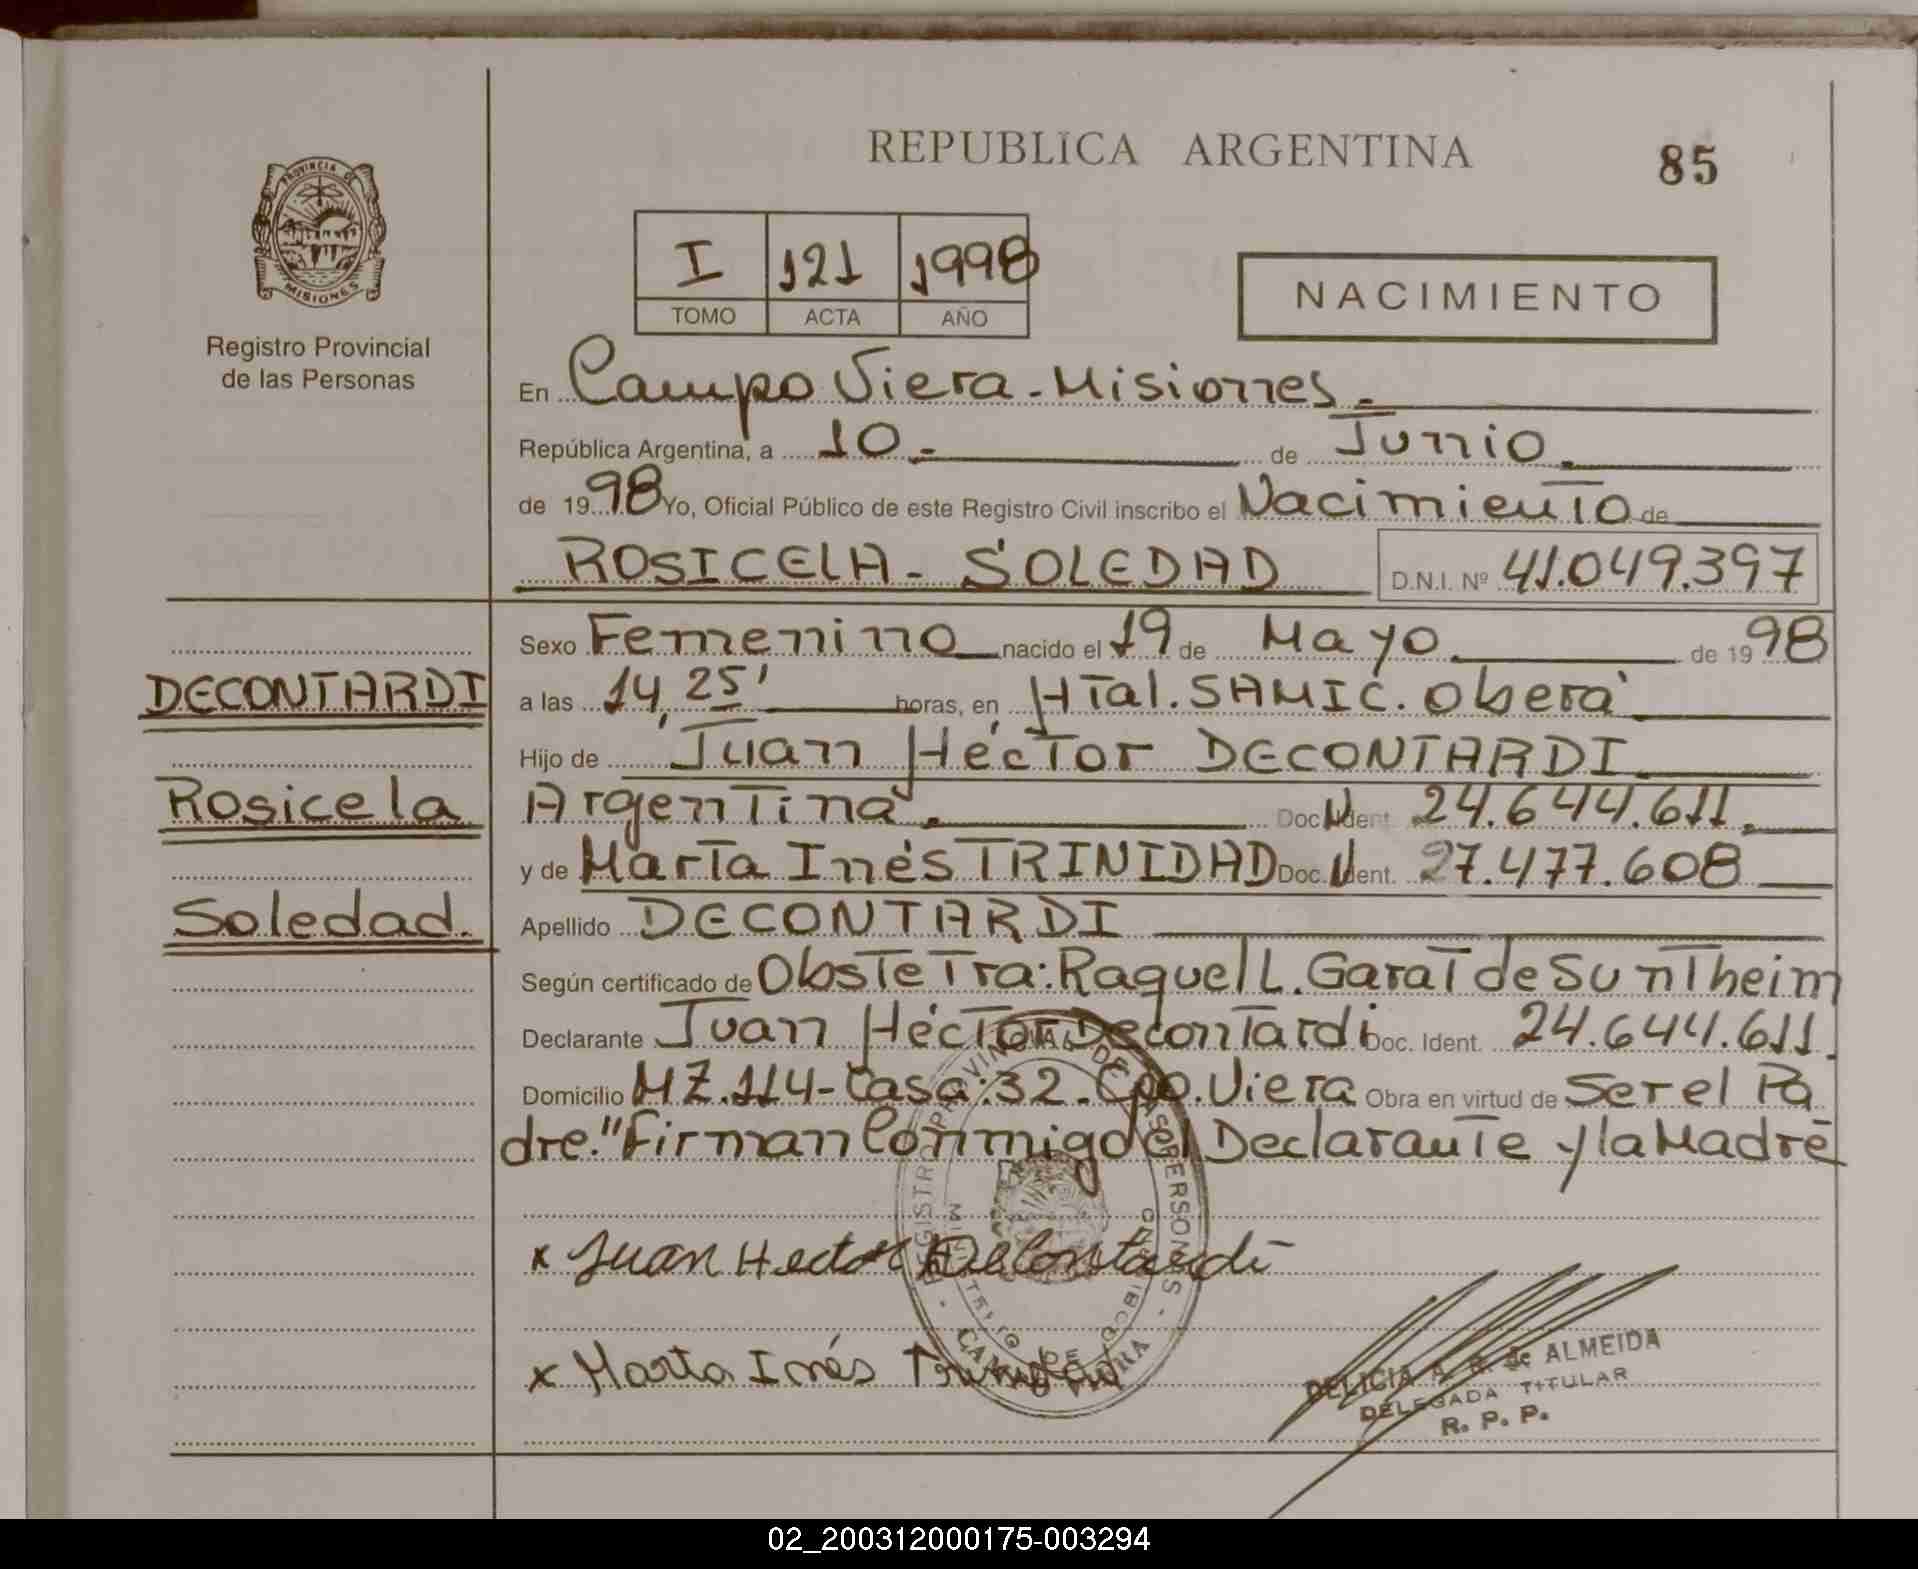 REPUBLICA ARGENTINA
85
PROVINCIA DE
MISIONES
Registro Provincial
de las Personas
I 121 1998
TOMO ACTA AÑO
NACIMIENTO
En Campo Viera - Misiones.
República Argentina, a 10 - de Junio
de 1998 Yo, Oficial Público de este Registro Civil inscribo el Nacimiento de
ROSICELA - SOLEDAD D.N.I. Nº 41.049.397
Sexo Femenino nacido el 19 de Mayo de 1998
DECONTARDI
a las 14,25' horas, en Htal. SAMIC. Oberá
Hijo de Juan Héctor DECONTARDI
Rosicela
Argentina. Doc. Ident. 24.644.611.
y de Marta Inés TRINIDAD Doc. Ident. 27.477.608
Soledad.
Apellido DECONTARDI
Según certificado de Obstetra: Raquel L. Garat de Suntheim
Declarante Juan Héctor Decontardi Doc. Ident. 24.644.611.
Domicilio MZ.114 - Casa: 32 - Cpo. Viera Obra en virtud de Ser el Pa
dre." Firman Conmigo el Declarante y la Madre
x Juan Hector Decontardi
x Marta Inés Trinidad
REGISTRO PROVINCIAL DE LAS PERSONAS
DELICIA A. de ALMEIDA
DELEGADA TITULAR
R. P. P.
02_200312000175-003294